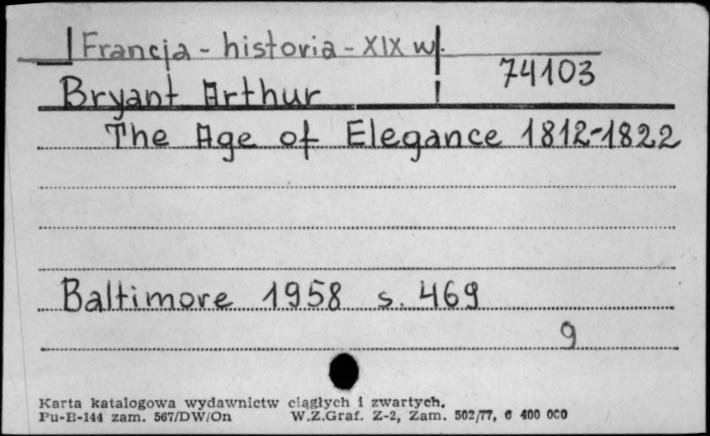 Francja - historia - XIX w.
74103
Bryant Arthur
The Age of Elegance 1812-1822
Baltimore 1958 s. 469
9
Karta katalogowa wydawnictw ciągłych i zwartych.
Pu-B-144 zam. 567/DW/On W.Z.Graf. Z-2, Zam. 502/77, 6 400 000